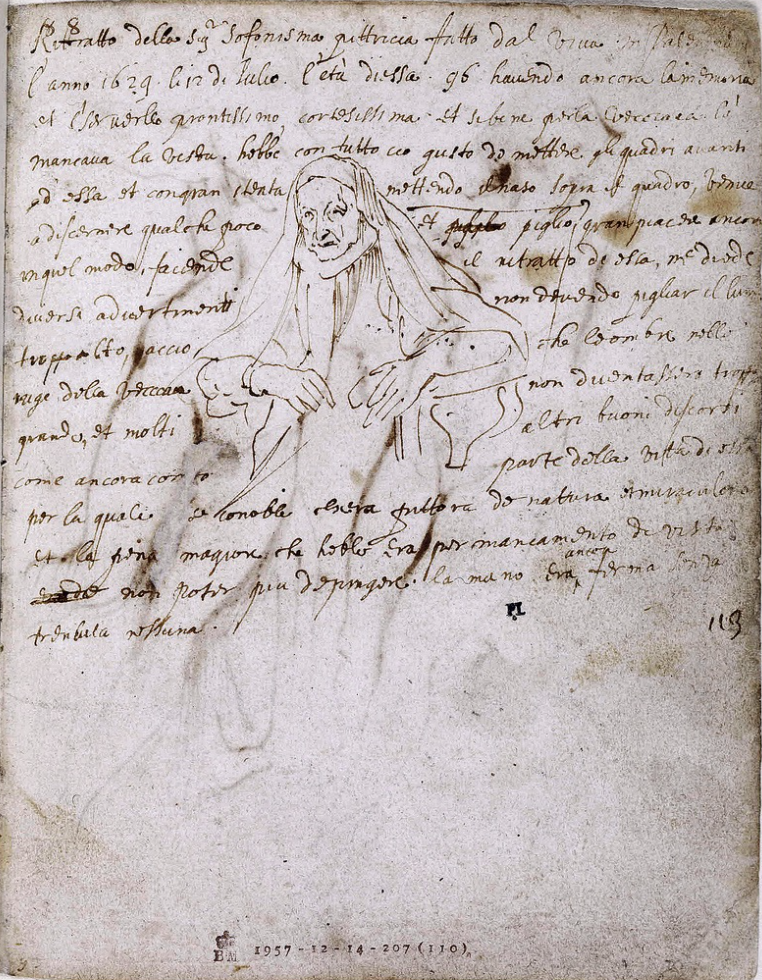 Rittratto della Sig.ra Sofonisma pittricia fatto dal vivo in Palermo
l'anno 1629 li 12 di Julio. l'età di essa 96 havendo ancora la memoria
et il serverllo prontissimo, cortesissima et sebene per la vecciaia li
mancava la vista. hebbe con tutto cio gusto de mettere gli quadri avanti
ad essa et con gran stenta mettendo il naso sopra il quadro, venne
a discernere qualche poco et piglio gran piacere ancora
in quel modo, facendo il ritratto de essa, me diede
diversi advertimenti non devendo pigliar il lume
troppo alto, accio che le ombre nelle
ruge della vecciaia non diventassero troppo
grande, et molti altri buoni discorsi
come ancora conto parte della vitta di essa
per la quale se conobbe chera pittora de natura et miraculosa
et la pena magiore che hebbe era per mancamento di vista
non poter piu depingere. la mano era ancora ferma senza
trembula nessuna.
PL
113
BM 1957-12-14-207(110)